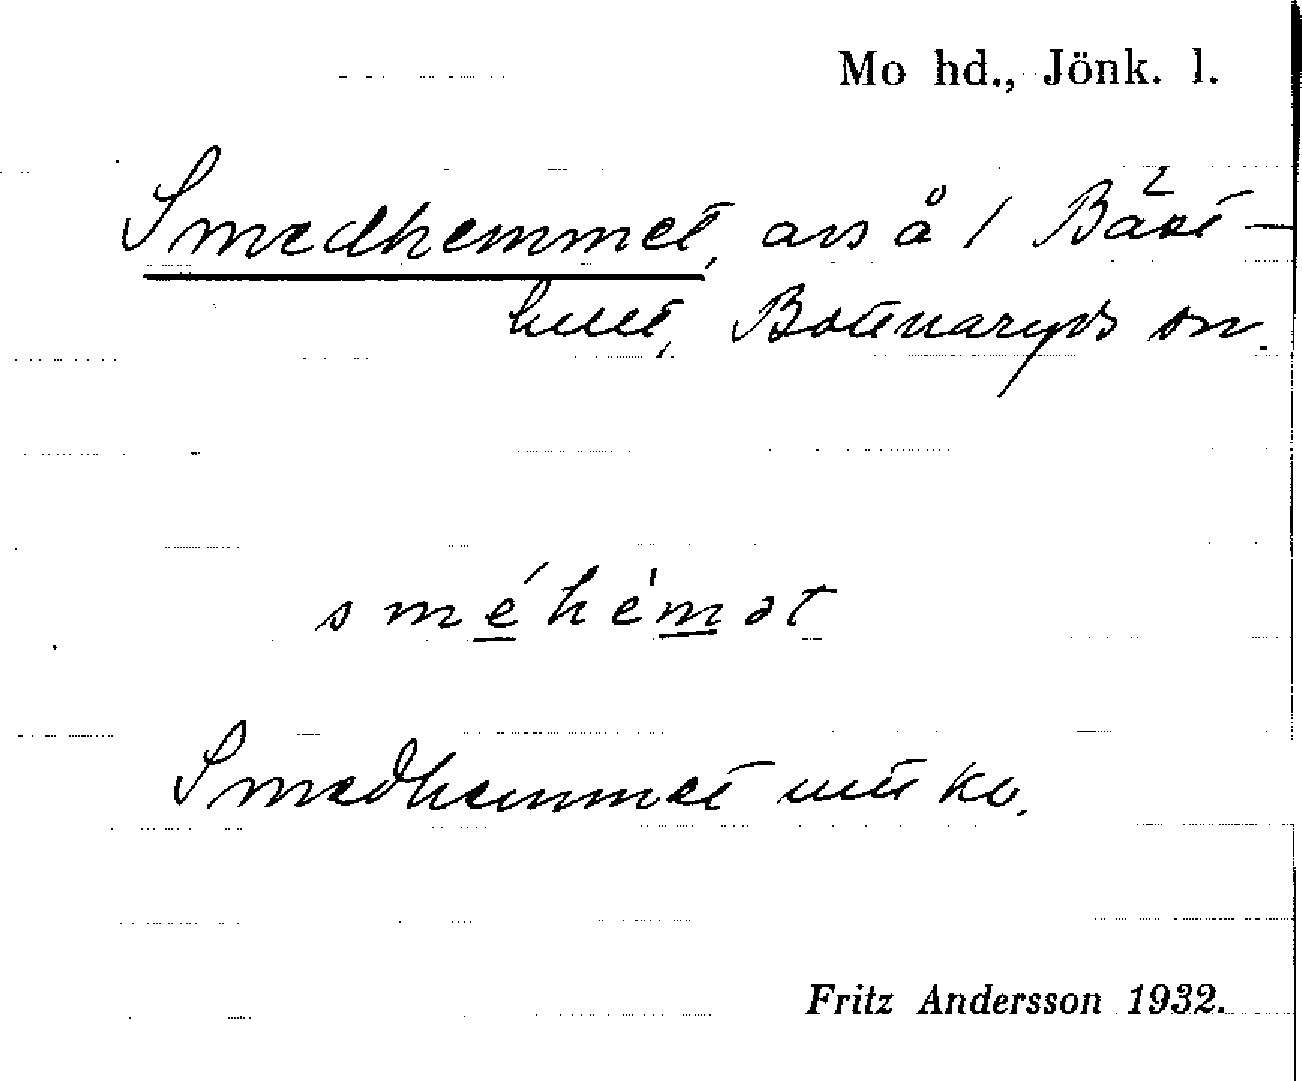 Mo hd., Jönk. l.
Smedhemmet, avs å 1 Bäst-
hult, Bottnaryds sn.
sméhèmət
Smedhemmet utt ko.
Fritz Andersson 1932.